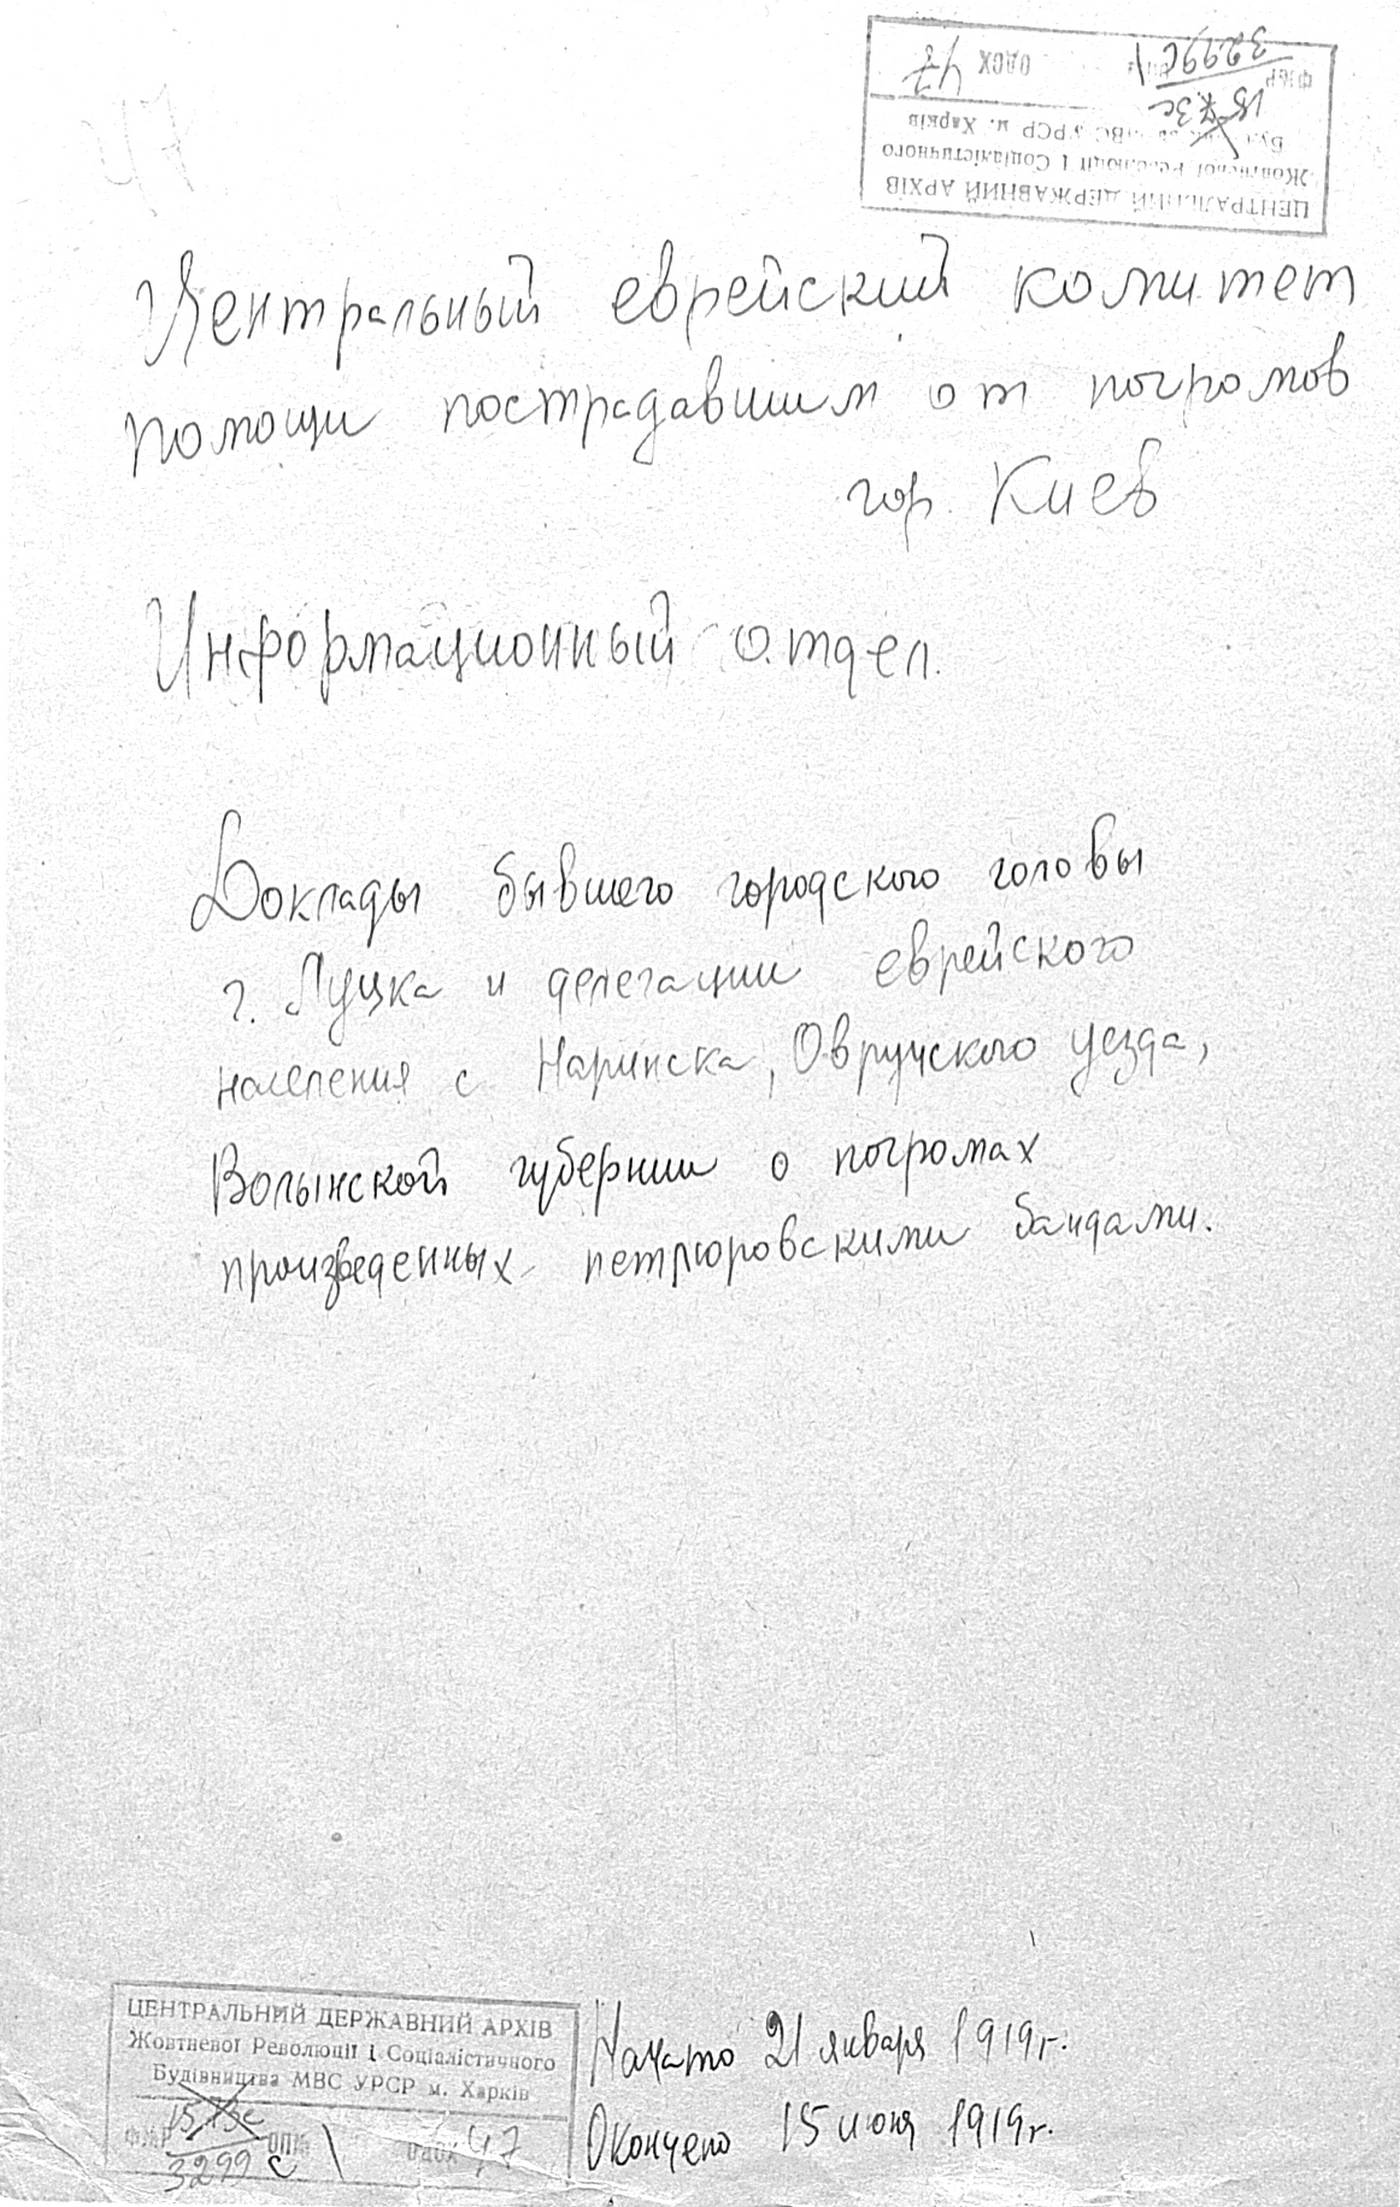 47
ЦЕНТРАЛЬНИЙ ДЕРЖАВНИЙ АРХІВ
Жовтневої Революції і Соціалістичного
МВС УРСР м. Харків
ФЖР 3299с 1 ОДСХ 47
Центральный еврейский комитет
помощи пострадавшим от погромов
гор. Киев
Информационный отдел.
Доклады бывшего городского головы
г. Луцка и делегации еврейского
населения с Наринска, Овручского уезда,
Волынской губернии о погромах
произведенных петлюровскими бандами.
ЦЕНТРАЛЬНИЙ ДЕРЖАВНИЙ АРХІВ
Жовтневої Революції і Соціалістичного
Будівництва МВС УРСР м. Харків
ФЖР 3299 с ОПИС 1 ОДСХ 47
Начато 21 января 1919г.
Окончено 15 июня 1919г.